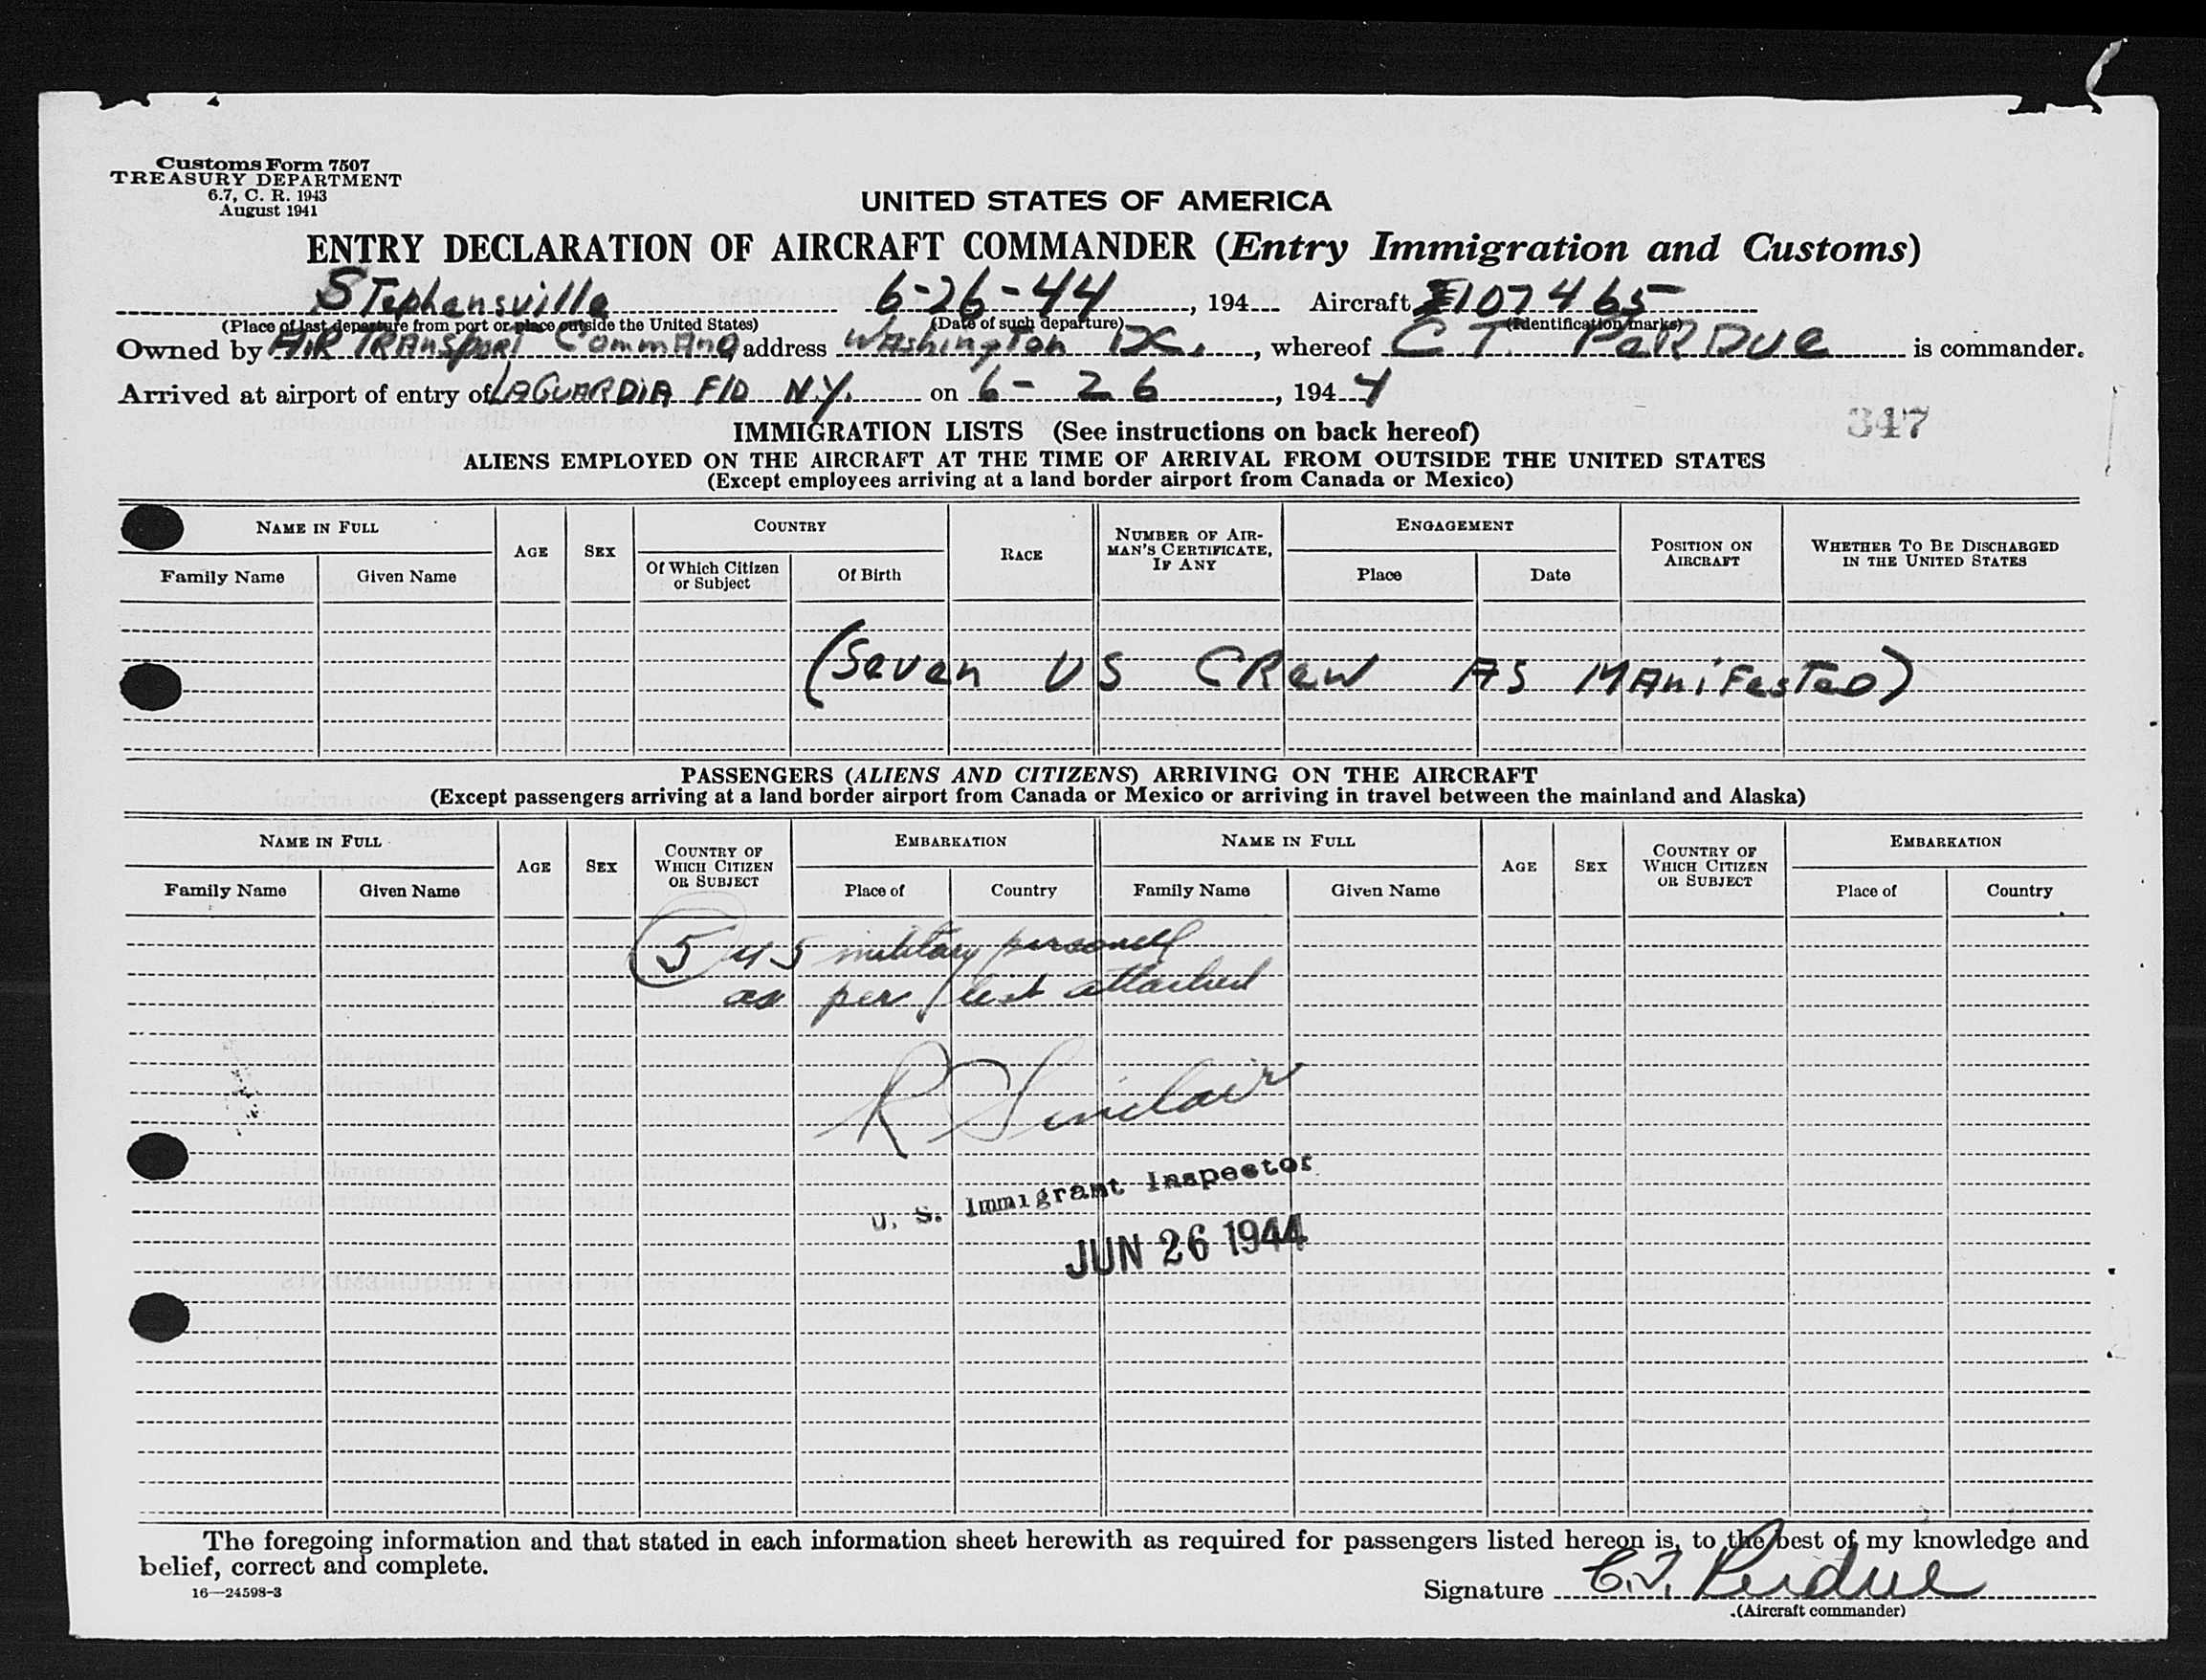 Customs Form 7507
TREASURY DEPARTMENT
6.7, C. R. 1943
August 1941
UNITED STATES OF AMERICA
ENTRY DECLARATION OF AIRCRAFT COMMANDER (Entry Immigration and Customs)
Stephensville 6-26-44, 194 Aircraft 107465
(Place of last departure from port or place outside the United States) (Date of such departure) (Identification marks)
Owned by AIR TRANSPORT COMMAND, address Washington DC., whereof C T. PeRDUe is commander.
Arrived at airport of entry of LAGUARDIA FLD N.Y. on 6-26, 1944
347
IMMIGRATION LISTS (See instructions on back hereof)
ALIENS EMPLOYED ON THE AIRCRAFT AT THE TIME OF ARRIVAL FROM OUTSIDE THE UNITED STATES
(Except employees arriving at a land border airport from Canada or Mexico)
NAME IN FULL AGE SEX COUNTRY RACE NUMBER OF AIRMAN'S CERTIFICATE, IF ANY ENGAGEMENT POSITION ON AIRCRAFT WHETHER TO BE DISCHARGED IN THE UNITED STATES
Family Name Given Name Of Which Citizen or Subject Of Birth Place Date
(Seven US CRew AS MANiFesTeD)
PASSENGERS (ALIENS AND CITIZENS) ARRIVING ON THE AIRCRAFT
(Except passengers arriving at a land border airport from Canada or Mexico or arriving in travel between the mainland and Alaska)
NAME IN FULL AGE SEX COUNTRY OF WHICH CITIZEN OR SUBJECT EMBARKATION NAME IN FULL AGE SEX COUNTRY OF WHICH CITIZEN OR SUBJECT EMBARKATION
Family Name Given Name Place of Country Family Name Given Name Place of Country
5 US military personell
as per list attached
R Sinclair
U. S. Immigrant Inspector
JUN 26 1944
The foregoing information and that stated in each information sheet herewith as required for passengers listed hereon is, to the best of my knowledge and
belief, correct and complete.
16—24598-3
Signature C.T. Perdue
(Aircraft commander)